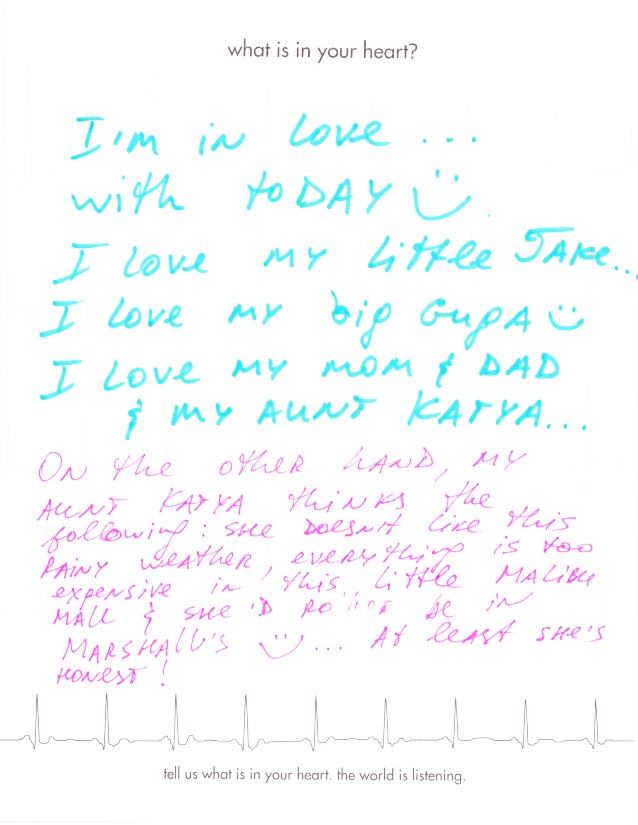 what is in your heart?
I'm in love ...
with toDAY
I love my little JAKE...
I love my big GugA
I love my mom & DAD
& my AUNT KATYA...
On the other hAND, my
AUNT KATYA thinks the
following: she doesn't like this
RAINY weather, everything is too
expensive in this little MALIBU
MALL & she'D be in
MARSHAll's ... At least she's
honest!
tell us what is in your heart. the world is listening.